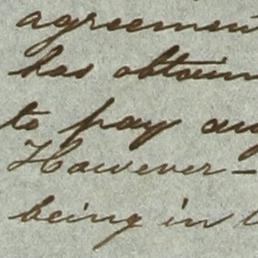 agreemen
has obtain
to pay any
However -
being in